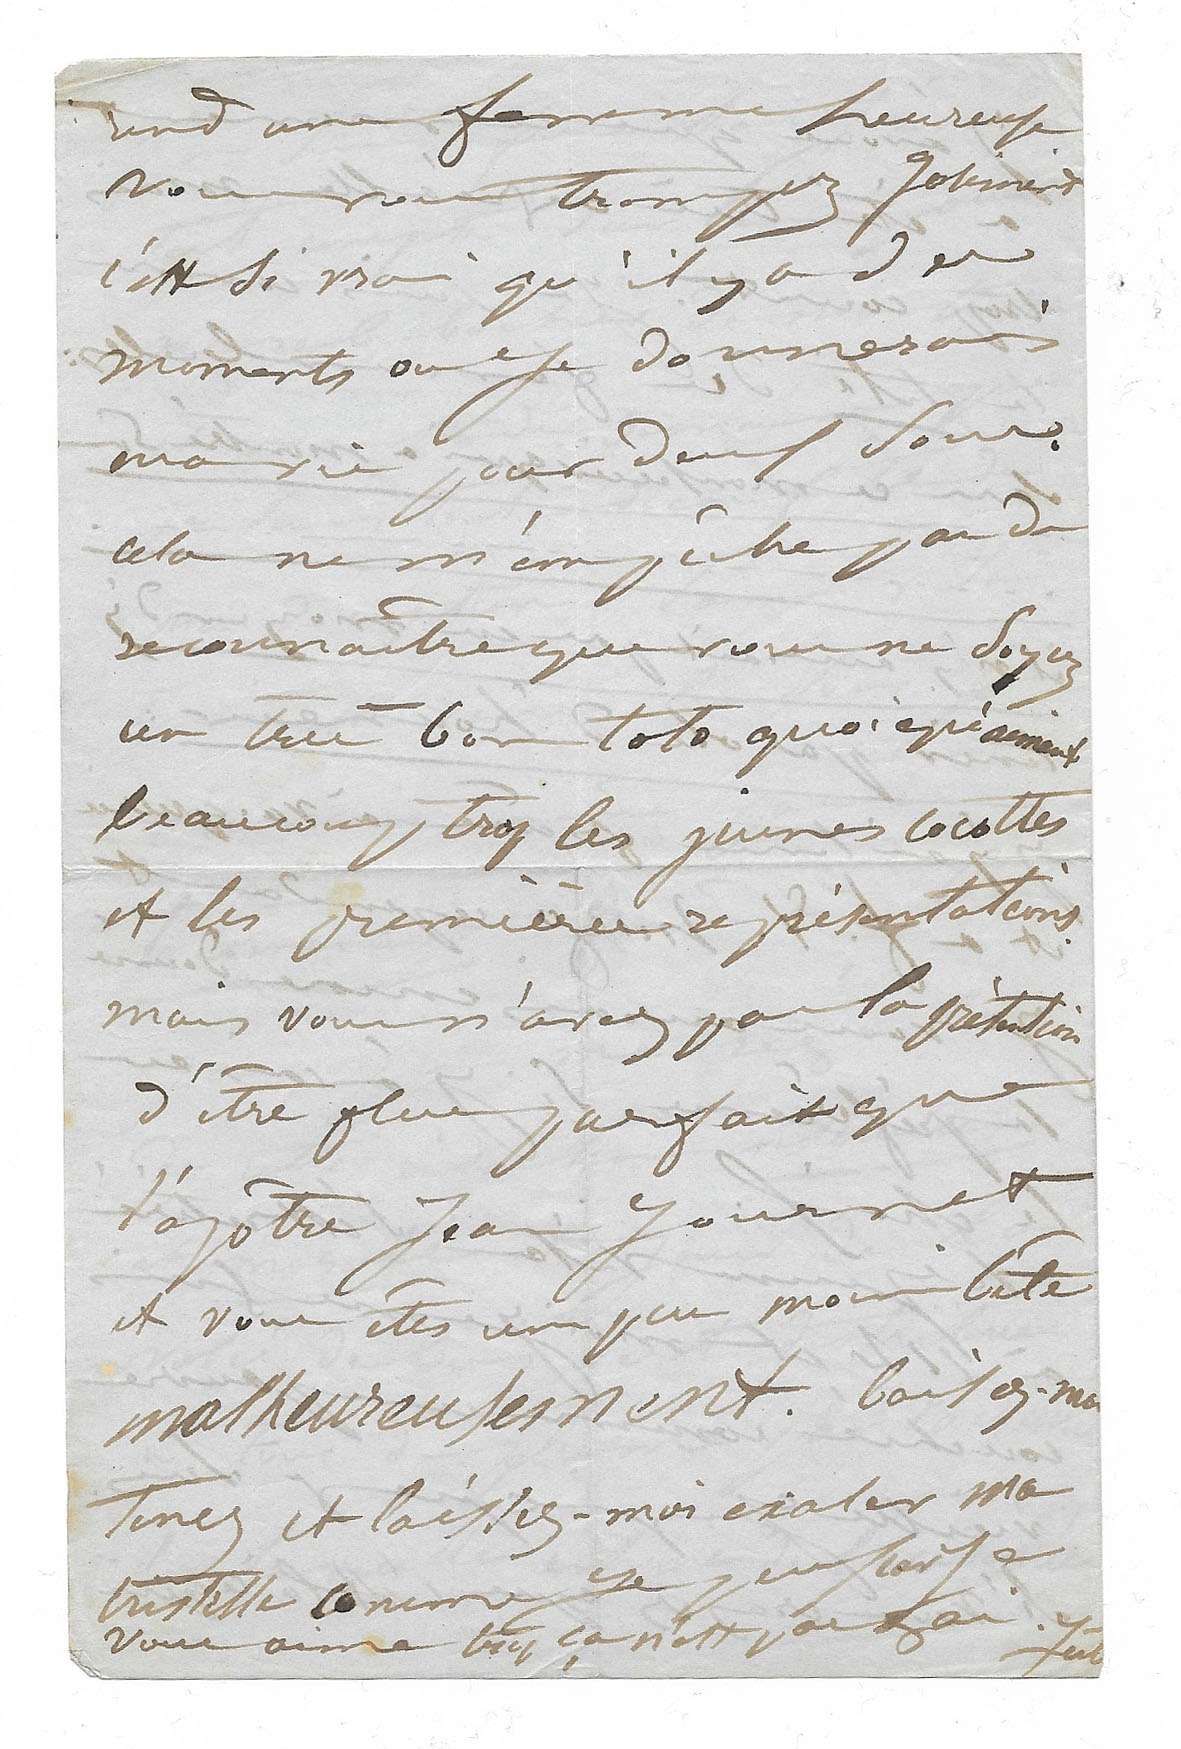 rend une femme heureuse
vous vous trompez joliment
c'est si vrai qu'il y a des
moments où je donnerais
ma vie pour deux sous.
cela ne m'empêche pas de
reconnaître que vous ne soyez
un très bon toto quoiqu'aimant
beaucoup trop les jeunes cocottes
et les premières représentations.
mais vous n'avez pas la prétention
d'être plus parfait que
l'apôtre Jean Journet
et vous êtes un peu moins bête
malheureusement. baisez-moi
tenez et laissez-moi exaler ma
tristesse comme je peux car je
vous aime trop ça n'est pas gai.